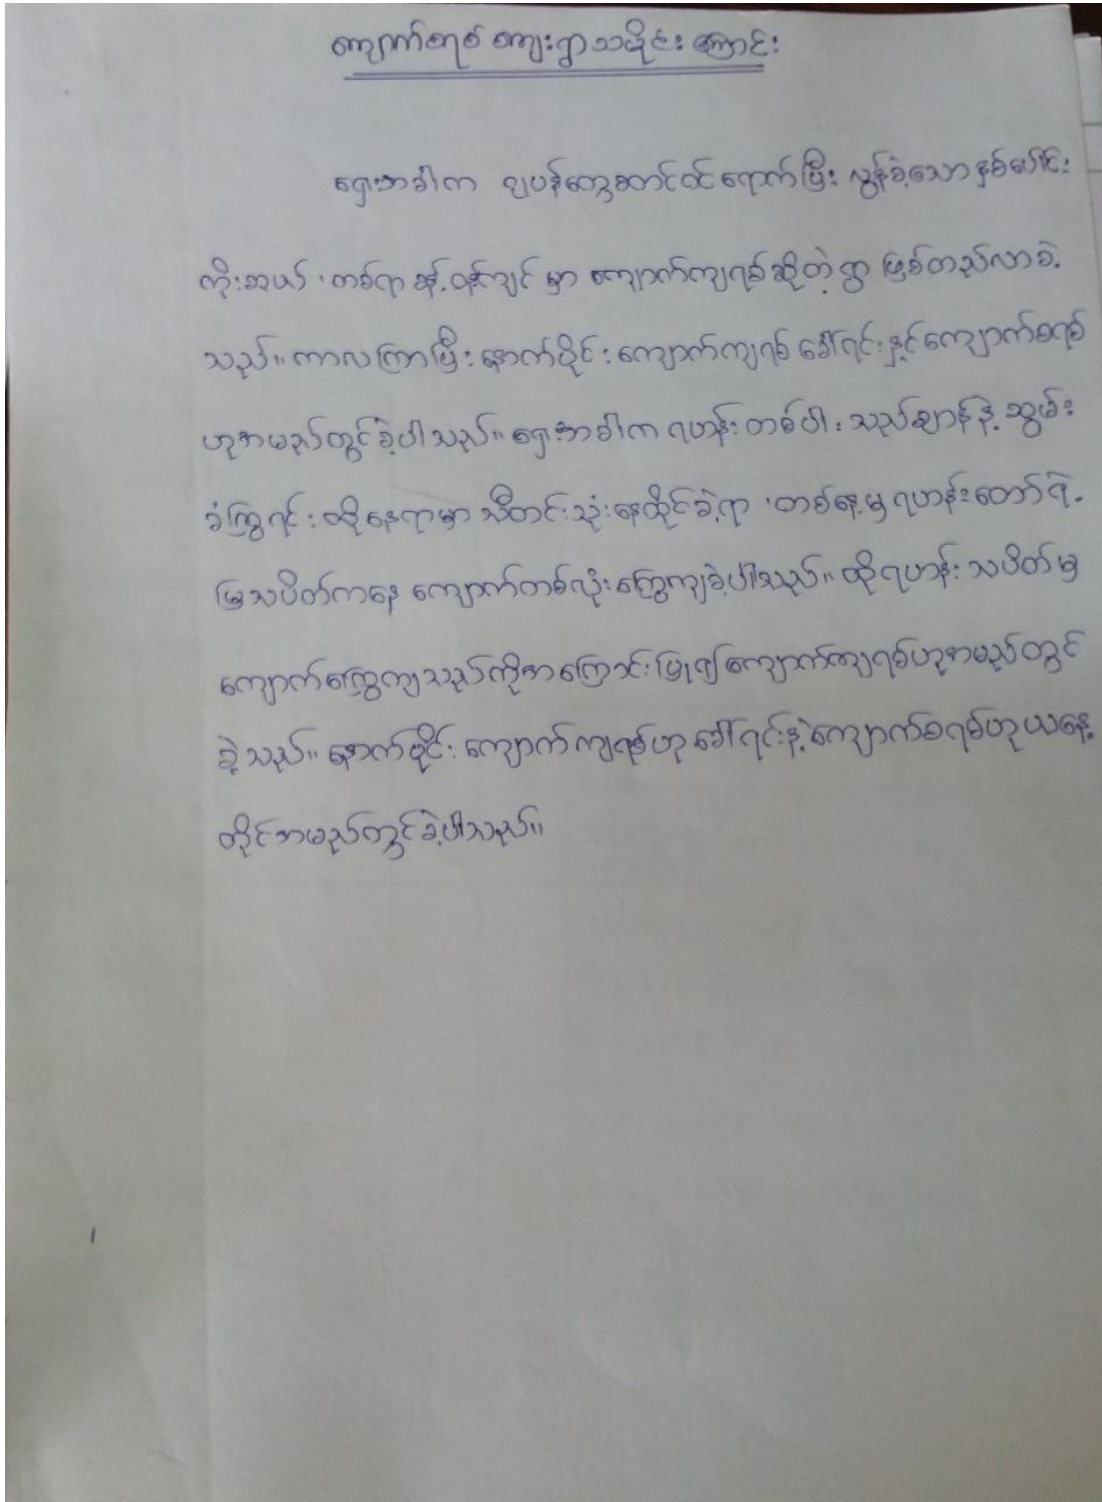 ကျောက်စရစ် ကျေးရွာသမိုင်း ကြောင်း
ရှေးအခါက ဂျပန်တွေဆောင်ဝင်ရောက်ပြီး လွန်ခဲ့သောနှစ်ပေါင်း
ကိုးဆယ် ၊ တစ်ရာ ခန့်ဝန်းကျင် မှာ ကျောက်ကျရစ်ဆိုတဲ့ရွာ ဖြစ်တည်လာခဲ့
သည်။ ကာလကြာပြီး နောက်ပိုင်း ကျောက်ကျရစ် ခေါ်ရင်းနှင့်ကျောက်စရစ်
ဟုအမည်တွင်ခဲ့ပါသည်။ ရှေးအခါက ရဟန်းတစ်ပါး သည်ဈာန်နဲ့ ဆွမ်း
ခံကြွရင်း ထိုနေရာမှာ သီတင်းသုံးနေထိုင်ခဲ့ရာ ၊ တစ်နေ့မှ ရဟန်းတော်ရဲ့
မြသပိတ်ကနေ ကျောက်တစ်လုံးကြွေကျခဲ့ပါသည်။ ထိုရဟန်း သပိတ်မှ
ကျောက်ကြွေကျသည်ကိုအကြောင်းပြု၍ ကျောက်ကျရစ်ဟုအမည်တွင်
ခဲ့သည်။ နောက်ပိုင်း ကျောက်ကျရစ်ဟု ခေါ်ရင်းနဲ့ ကျောက်စရစ်ဟု ယနေ့
တိုင်အမည်တွင်ခဲ့ပါသည်။